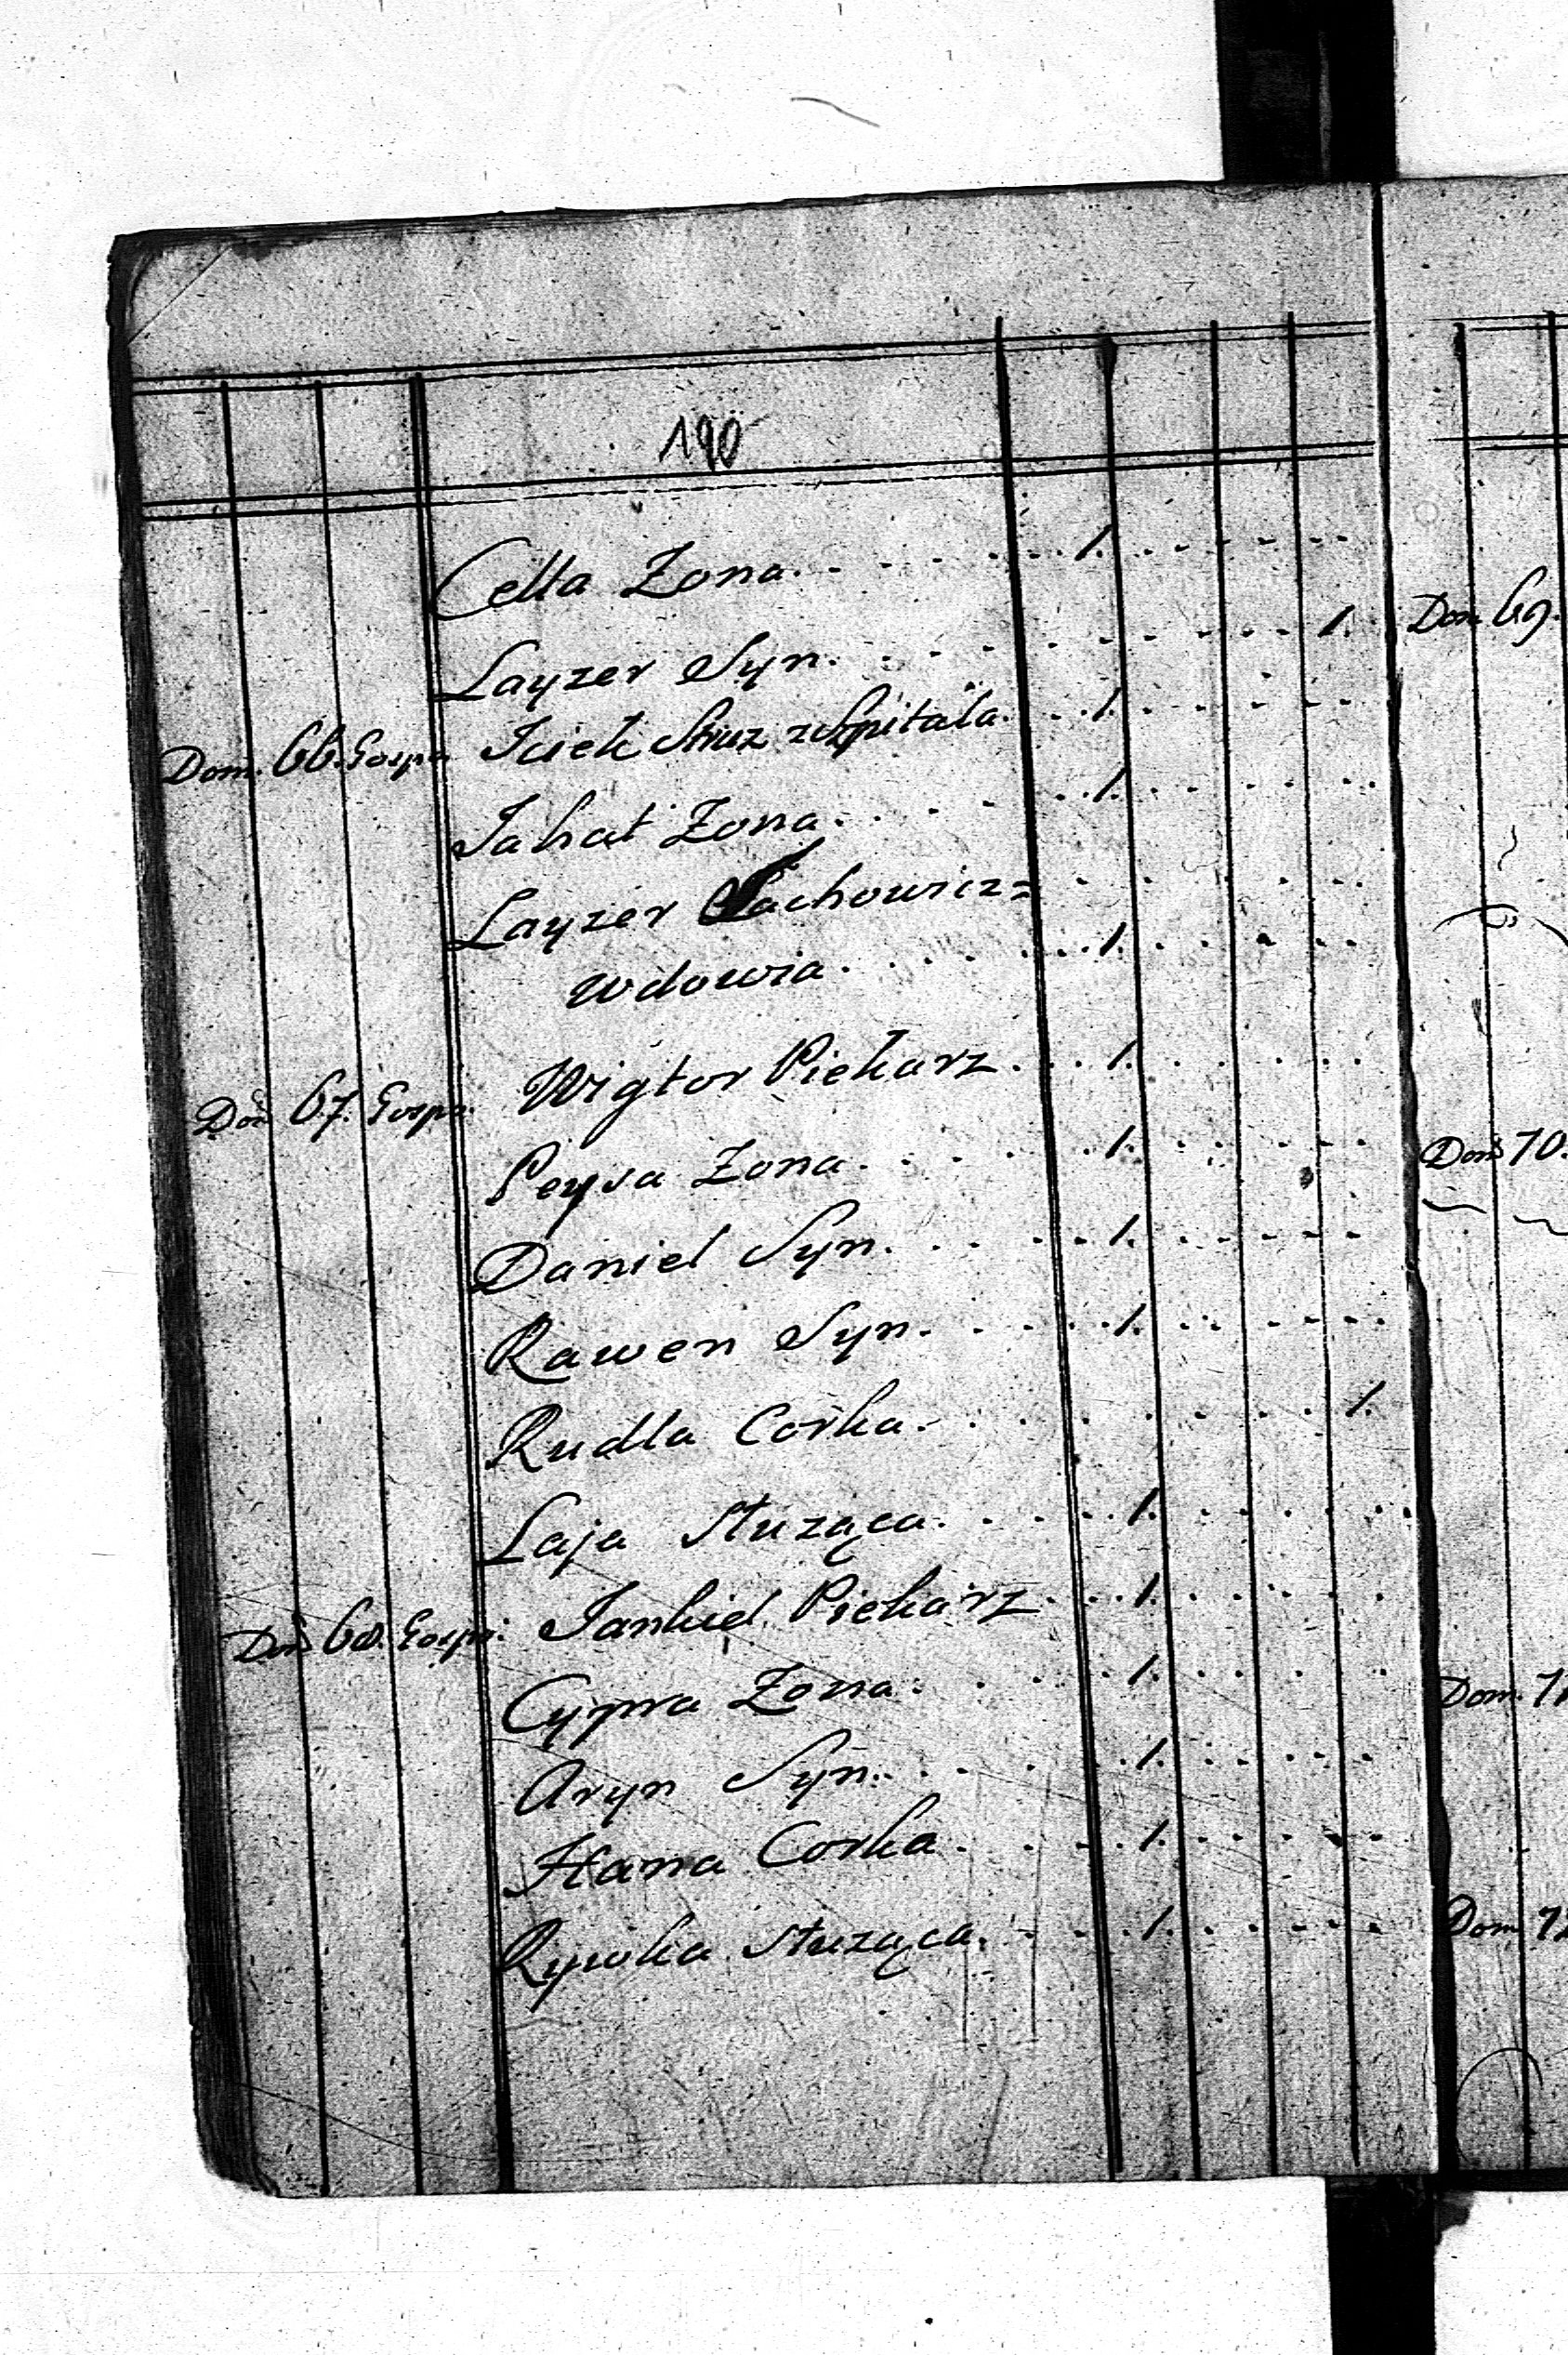 190
Cella Zona . . . . . 1. . . . . .
Layzer Syn. . . . . . . . . 1.
Dom. 66. Gosp. Iciek Struz z Szpitala. . . 1. . . . . .
Jahat Zona . . . . 1. . . . . .
Layzer Lachowicz =
wdowia . . . . . 1. . . . .
Dom 67. Gosp. Wigtor Piekarz . . . 1. . . . . .
Peysa Zona . . . . . 1. . . . . .
Daniel Syn. . . . . 1. . . . . .
Rawen Syn. . . . . 1. . . . . .
Rudla Corka. . . . . . . . . 1.
Laja Słuząca. . . . . 1. . . . . .
Dom 68. Gosp. Jankiel Piekarz . . . 1. . . . . .
Cypra Zona . . . . 1. . . . . .
Aryn Syn. . . . . 1. . . . . .
Hana Corka . . . . 1. . . . . .
Rywka Słuząca. . . . 1. . . . . .
Dom 69.
Dom 70.
Dom. 71
Dom